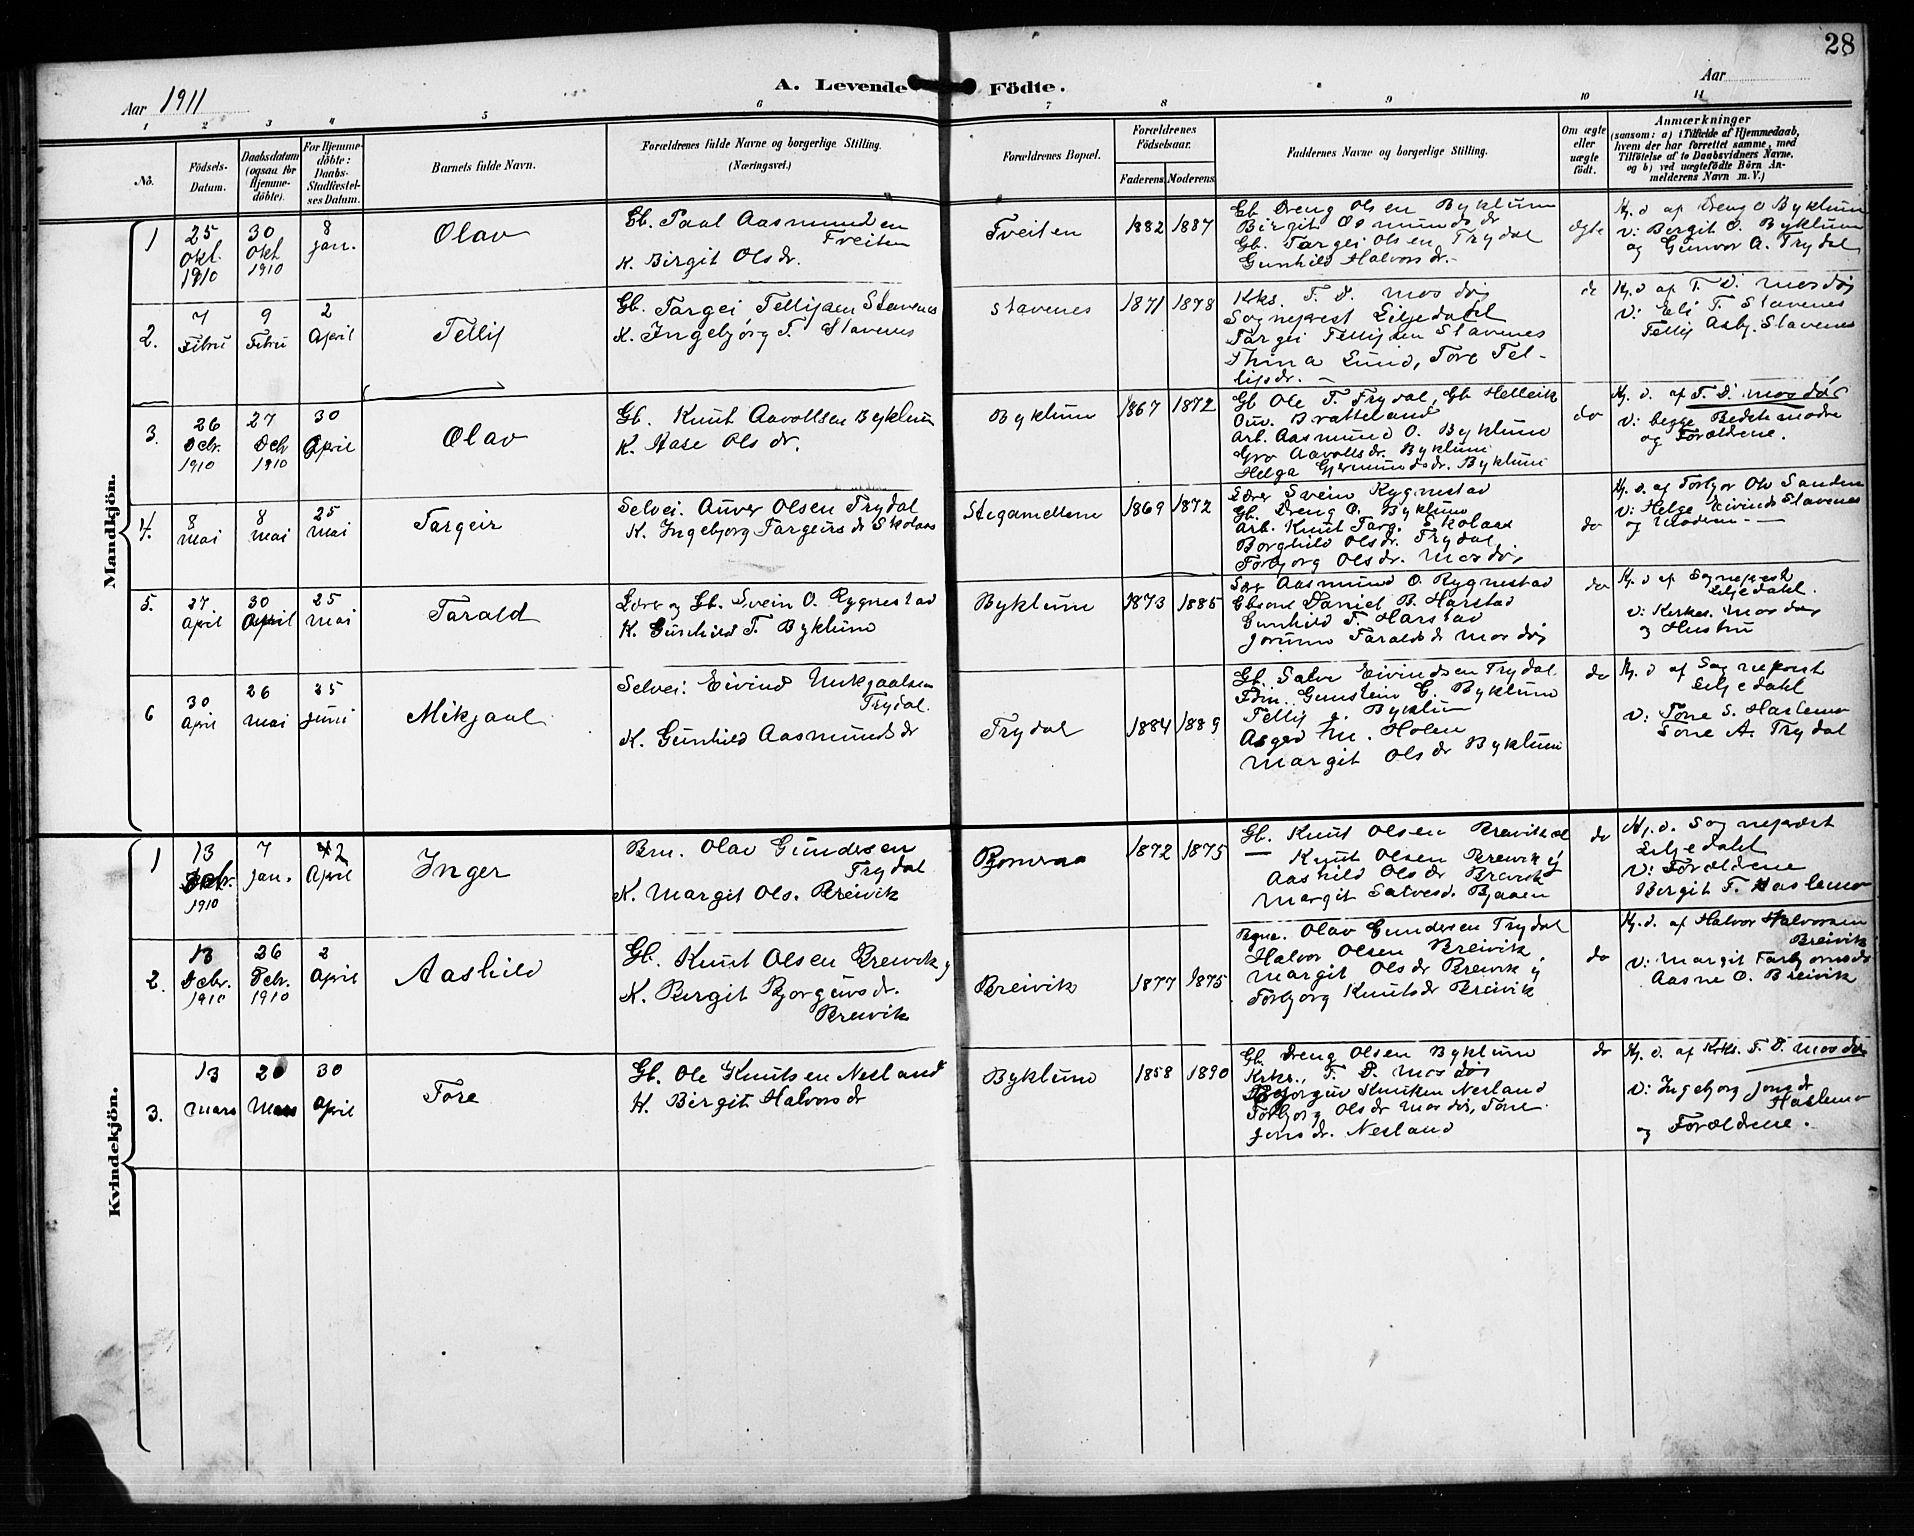 28
Aar 1911
A. Levende Födte.
Aar
1 2 3 4 5 6 7 8 9 10 11
No.
Födsels-
Datum.
Daabsdatum
(ogsaa for
Hjemme-
döbte).
For Hjemme-
döbte:
Daabs-
Stadfæstel-
ses Datum.
Barnets fulde Navn.
Forældrenes fulde Navne og borgerlige Stilling.
(Næringsvei.)
Forældrenes Bopæl.
Forældrenes
Födselsaar.
Faderens. Moderens.
Faddernes Navne og borgerlige Stilling.
Om ægte
eller
uægte
födt.
Anmærkninger
(saasom: a) i Tilfælde af Hjemmedaab,
hvem der har forrettet samme, med
Tilföielse af to Daabsvidners Navne,
og b) ved uægtefödte Börn An-
melderens Navn m. V.)
Mandkjön.
1
25
Okt.
1910
30
Okt
1910
8
jan.
Olav
Gb. Paal Aasmundsen
Tveiten
K. Birgit Olsdr.
Tveiten
1882 1887
Gb. Dreng Olsen Byklum
Birgit Osmundsdr
Gb. Targei Olsen Trydal
Gunhild Halvorsdr.
ægte
Hj. d af Dreng O Byklum
v: Bergit O. Byklum
og Gunvor A. Trydal
2.
7
Febru
9
Febru
2
April
Tellif
Gb. Targei Tellifsen Stavenes
K. Ingebjörg T. Stavenes
Stavenes
1871 1878
Kks. T. D. Mosdöj
Sogneprest Liljedahl
Targei Tellifsen Stavenes
Thina Lund, Tore Tel-
lifsdr.
do
Hj. d af T. D. Mosdöj
v: Eli T. Stavenes
Tellif Asbj. Stavenes
3.
26
Decbr.
1910
27
Decb
1910
30
April
Olav
Gb. Knut Aavoldsen Byklum
K. Aase Olsdr.
Byklum
1867 1872
Gb Ole T. Trydal, Gb Helleik
Ouv. Bratteland
Arb. Aasmund O. Byklum
Gro Aavoldsdr. Byklum
Helga Gjermundsdr. Byklum
do
Hj. d. af T. D. Mosdöi
v: begge Bedstemodre
og Forældrene.
4.
8
Mai
8
Mai
25
Mai
Targeir
Selvei. Auver Olsen Trydal
K. Ingeborg Targeirsdr Skolaas
Stegamellene
1869 1872
Lærer Svein Rygnestad
Gb. Dreng O. Byklum
Arb. Knut Targ. Skolaas
Borghild Olsdr. Trydal
Torbjorg Olsdr. Mosdöi
do
Hj. d. af Torbjor Ols Sanden
v: Helge Eivinds Stavenes
og Moderen
5.
27
April
30
April
25
Mai
Tarald
Lærer og Gb. Svein O. Rygnestad
K. Gunhild T. Byklum
Byklum
1873 1885
Lærer Aasmund O. Rygnestad
Gbsönl Daniel B. Harstad
Gunhild T. Harstad
Jorunn Taraldsdr Mosdöj
do
Hj. d af Sogneprest
Liljedahl.
v: Kirkes. Mosdöj
og Hustru
6
30
April
26
Mai
25
Juni
Mikjaal
Selvei. Eivind Mikjaalsen
Trydal.
K. Gunhild Aasmundsdr
Trydal
1884 1889
Gb. Salve Eivindsen Trydal
Gunstein G. Byklum
Tellif Byklum
Asged M. Holen
Margit Olsdr Byklum
do
Hj. d af Sogneprest
Liljedahl
v: Tone S. Haslemo
Tone A. Trydal
Kvindekjön.
1
13
Decbr.
1910
7
Jan.
2
April
Inger
Bm. Olav Gundersen
Trydal
K. Margit Ols. Breivik
Bjorneraa
1872 1875
Gb. Knut Olsen Breivik æl
— Knut Olsen Breivik y
Aashild Olsdr Breivik
Margit Salvesd. Bjaaen
do
Hj. d. Sogneprest
Liljedahl
v: Forældrene
Bergit T. Haslemo
2.
13
Decbr.
1910
26
Decbr.
1910
2
April
Aashild
Gb. Knut Olsen Breivik y
K. Bergit Bjorgulvsdr.
Breivik
Breivik
1877 1875
Olav Gundersen Trydal
Halvor Olsen Breivik
Margit Olsdr Breivik y
Torbjorg Knutsdr Breivik
do
Hj. d. af Halvor Halvorsen
Breivik
v: Margit Torbjornsdr
Aasne O. Breivik
3.
13
Mars
20
Mars
30
April
Tore
Gb. Ole Knutsen Nesland
H. Birgit Halvorsdr
Byklum
1858 1890
Gb. Dreng Olsen Byklum
Krks. T. D. Mosdöi
Bjorguv Knutsen Nesland
Torbjorg Olsdr Mosdöi, Tone
Jonsdr. Nesland
do
Hj. d. af Krks. T. D. Mosdöi
v: Ingeborg Jonsdr
Haslemo
og Forældrene.